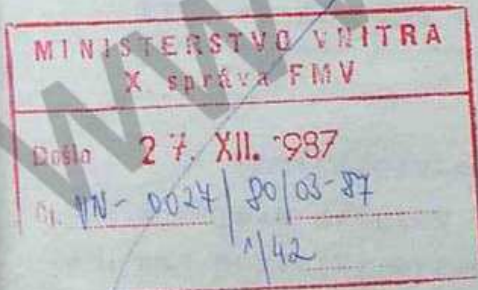 MINISTERSTVO VNITRA
X správa FMV
Došlo 27. XII. 1987
Čj. VN- 0024/80/03-87
1/42